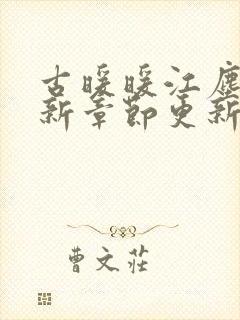 古暖暖江塵
新章節更新
曹文莊